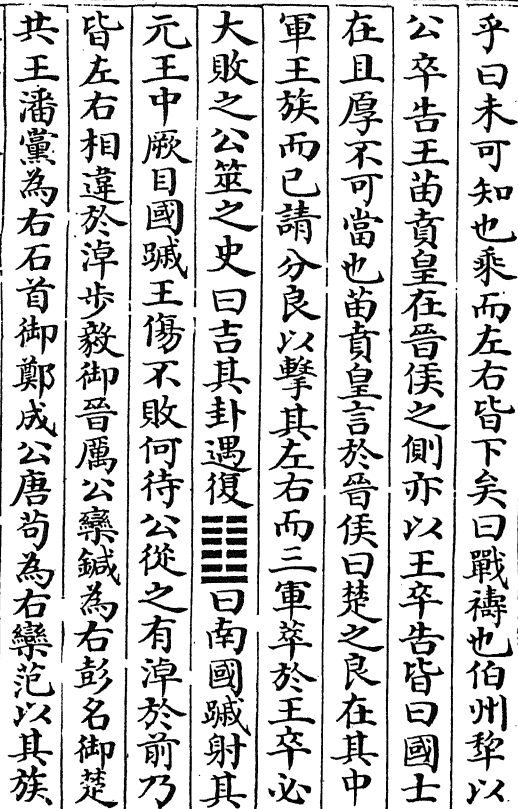 乎曰未可知也乘而左右皆下矣曰戰禱也伯州犂以
公卒告王苗賁皇在晉侯之側亦以王卒告皆曰國士
在且厚不可當也苗賁皇言於晉侯曰楚之良在其中
軍王族而已請分良以擊其左右而三軍萃於王卒必
大敗之公筮之史曰吉其卦遇復䷗曰南國䠞射其
元王中厥目國䠞王傷不敗何待公從之有淖於前乃
皆左右相違於淖步毅御晉厲公欒鍼為右彭名御楚
共王潘黨為右石首御鄭成公唐苟為右欒范以其族